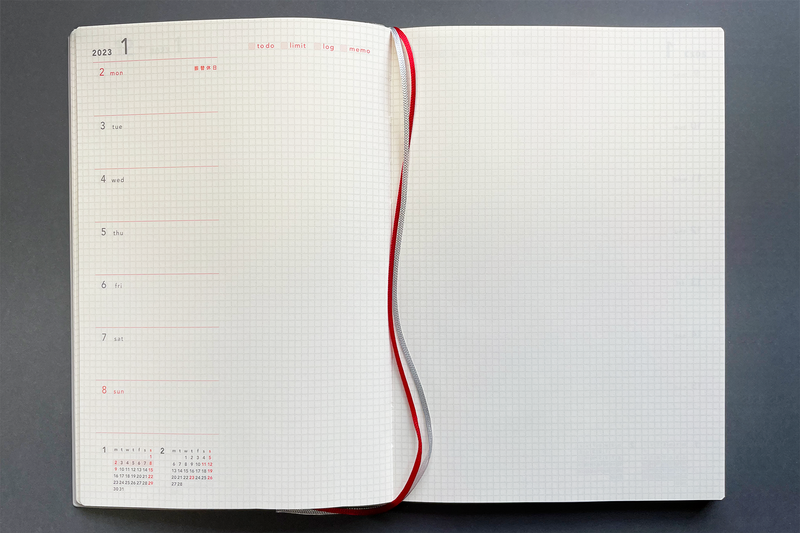 2023 1
to do limit log memo
2 mon 振替休日
3 tue
4 wed
5 thu
6 fri
7 sat
8 sun
1 m t w t f s s
1
2 3 4 5 6 7 8
9 10 11 12 13 14 15
16 17 18 19 20 21 22
23 24 25 26 27 28 29
30 31
2 m t w t f s s
1 2 3 4 5
6 7 8 9 10 11 12
13 14 15 16 17 18 19
20 21 22 23 24 25 26
27 28